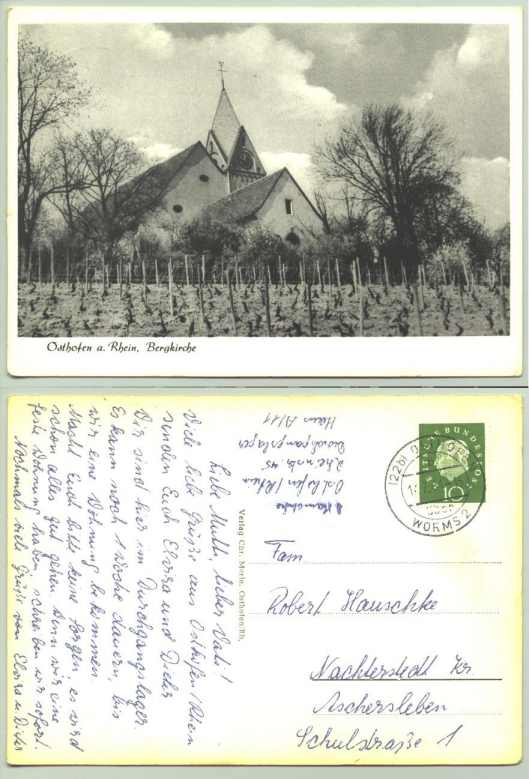 Osthofen a. Rhein, Bergkirche
Liebe Mutti, lieber Vati!
Viele liebe Grüße aus Osthofen/Rhein
senden Euch Elvira und Dieter
Wir sind hier im Durchgangslager.
Es kann noch 1 Woche dauern, bis
wir eine Wohnung bekommen.
Macht Euch bitte keine Sorgen, es wird
schon alles gut gehen. Wenn wir eine
feste Wohnung haben, schreiben wir sofort.
Nochmals viele Grüße von Elvira u. Dieter
Verlag Chr. Merlo, Osthofen/Rh.
Hauschke
Osthofen/Rhein
Durchgangslager
Haus A/11
DEUTSCHE BUNDESPOST
10
(22b)
WORMS 2
Fam
Robert Hauschke
Nachterstedt Kr
Aschersleben
Schulstraße 1